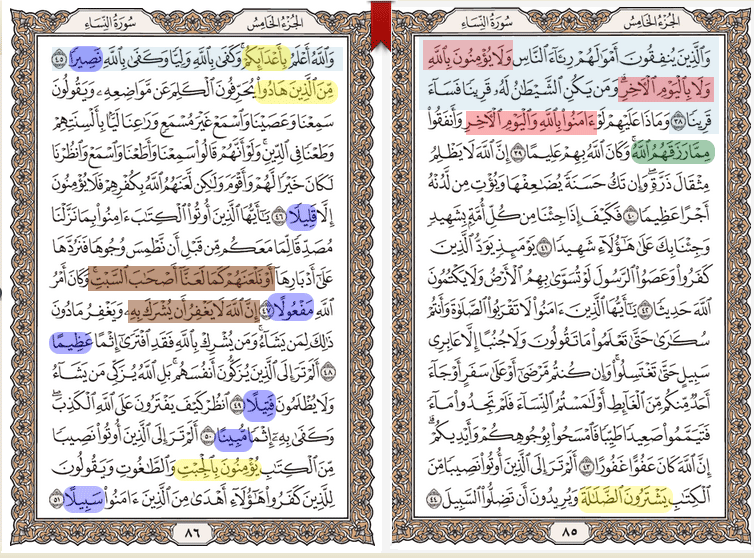 الجُزْءُ الخَامِسُ
سُورَةُ النِّسَاءِ
وَٱلَّذِينَ يُنفِقُونَ أَمْوَٰلَهُمْ رِئَآءَ ٱلنَّاسِ وَلَا يُؤْمِنُونَ بِٱللَّهِ
وَلَا بِٱلْيَوْمِ ٱلْـَٔاخِرِۗ وَمَن يَكُنِ ٱلشَّيْطَٰنُ لَهُۥ قَرِينًا فَسَآءَ
قَرِينًا ٣٨ وَمَاذَا عَلَيْهِمْ لَوْ ءَامَنُوا۟ بِٱللَّهِ وَٱلْيَوْمِ ٱلْـَٔاخِرِ وَأَنفَقُوا۟
مِمَّا رَزَقَهُمُ ٱللَّهُۚ وَكَانَ ٱللَّهُ بِهِمْ عَلِيمًا ٣٩ إِنَّ ٱللَّهَ لَا يَظْلِمُ
مِثْقَالَ ذَرَّةٍۖ وَإِن تَكُ حَسَنَةً يُضَٰعِفْهَا وَيُؤْتِ مِن لَّدُنْهُ
أَجْرًا عَظِيمًا ٤٠ فَكَيْفَ إِذَا جِئْنَا مِن كُلِّ أُمَّةٍۭ بِشَهِيدٍ
وَجِئْنَا بِكَ عَلَىٰ هَٰٓؤُلَآءِ شَهِيدًا ٤١ يَوْمَئِذٍ يَوَدُّ ٱلَّذِينَ
كَفَرُوا۟ وَعَصَوُا۟ ٱلرَّسُولَ لَوْ تُسَوَّىٰ بِهِمُ ٱلْأَرْضُ وَلَا يَكْتُمُونَ
ٱللَّهَ حَدِيثًا ٤٢ يَٰٓأَيُّهَا ٱلَّذِينَ ءَامَنُوا۟ لَا تَقْرَبُوا۟ ٱلصَّلَوٰةَ وَأَنتُمْ
سُكَٰرَىٰ حَتَّىٰ تَعْلَمُوا۟ مَا تَقُولُونَ وَلَا جُنُبًا إِلَّا عَابِرِى
سَبِيلٍ حَتَّىٰ تَغْتَسِلُوا۟ۚ وَإِن كُنتُم مَّرْضَىٰٓ أَوْ عَلَىٰ سَفَرٍ أَوْ جَآءَ
أَحَدٌ مِّنكُم مِّنَ ٱلْغَآئِطِ أَوْ لَٰمَسْتُمُ ٱلنِّسَآءَ فَلَمْ تَجِدُوا۟ مَآءً
فَتَيَمَّمُوا۟ صَعِيدًا طَيِّبًا فَٱمْسَحُوا۟ بِوُجُوهِكُمْ وَأَيْدِيكُمْۗ
إِنَّ ٱللَّهَ كَانَ عَفُوًّا غَفُورًا ٤٣ أَلَمْ تَرَ إِلَى ٱلَّذِينَ أُوتُوا۟ نَصِيبًا مِّنَ
ٱلْكِتَٰبِ يَشْتَرُونَ ٱلضَّلَٰلَةَ وَيُرِيدُونَ أَن تَضِلُّوا۟ ٱلسَّبِيلَ ٤٤
٨٥
الجُزْءُ الخَامِسُ
سُورَةُ النِّسَاءِ
وَٱللَّهُ أَعْلَمُ بِأَعْدَآئِكُمْۚ وَكَفَىٰ بِٱللَّهِ وَلِيًّا وَكَفَىٰ بِٱللَّهِ نَصِيرًا ٤٥
مِّنَ ٱلَّذِينَ هَادُوا۟ يُحَرِّفُونَ ٱلْكَلِمَ عَن مَّوَاضِعِهِۦ وَيَقُولُونَ
سَمِعْنَا وَعَصَيْنَا وَٱسْمَعْ غَيْرَ مُسْمَعٍ وَرَٰعِنَا لَيًّۢا بِأَلْسِنَتِهِمْ
وَطَعْنًا فِى ٱلدِّينِۚ وَلَوْ أَنَّهُمْ قَالُوا۟ سَمِعْنَا وَأَطَعْنَا وَٱسْمَعْ وَٱنظُرْنَا
لَكَانَ خَيْرًا لَّهُمْ وَأَقْوَمَ وَلَٰكِن لَّعَنَهُمُ ٱللَّهُ بِكُفْرِهِمْ فَلَا يُؤْمِنُونَ
إِلَّا قَلِيلًا ٤٦ يَٰٓأَيُّهَا ٱلَّذِينَ أُوتُوا۟ ٱلْكِتَٰبَ ءَامِنُوا۟ بِمَا نَزَّلْنَا
مُصَدِّقًا لِّمَا مَعَكُم مِّن قَبْلِ أَن نَّطْمِسَ وُجُوهًا فَنَرُدَّهَا
عَلَىٰٓ أَدْبَارِهَآ أَوْ نَلْعَنَهُمْ كَمَا لَعَنَّآ أَصْحَٰبَ ٱلسَّبْتِۚ وَكَانَ أَمْرُ
ٱللَّهِ مَفْعُولًا ٤٧ إِنَّ ٱللَّهَ لَا يَغْفِرُ أَن يُشْرَكَ بِهِۦ وَيَغْفِرُ مَا دُونَ
ذَٰلِكَ لِمَن يَشَآءُۚ وَمَن يُشْرِكْ بِٱللَّهِ فَقَدِ ٱفْتَرَىٰٓ إِثْمًا عَظِيمًا
٤٨ أَلَمْ تَرَ إِلَى ٱلَّذِينَ يُزَكُّونَ أَنفُسَهُمۚ بَلِ ٱللَّهُ يُزَكِّى مَن يَشَآءُ
وَلَا يُظْلَمُونَ فَتِيلًا ٤٩ ٱنظُرْ كَيْفَ يَفْتَرُونَ عَلَى ٱللَّهِ ٱلْكَذِبَۖ
وَكَفَىٰ بِهِۦٓ إِثْمًا مُّبِينًا ٥٠ أَلَمْ تَرَ إِلَى ٱلَّذِينَ أُوتُوا۟ نَصِيبًا
مِّنَ ٱلْكِتَٰبِ يُؤْمِنُونَ بِٱلْجِبْتِ وَٱلطَّٰغُوتِ وَيَقُولُونَ
لِلَّذِينَ كَفَرُوا۟ هَٰٓؤُلَآءِ أَهْدَىٰ مِنَ ٱلَّذِينَ ءَامَنُوا۟ سَبِيلًا ٥١
٨٦